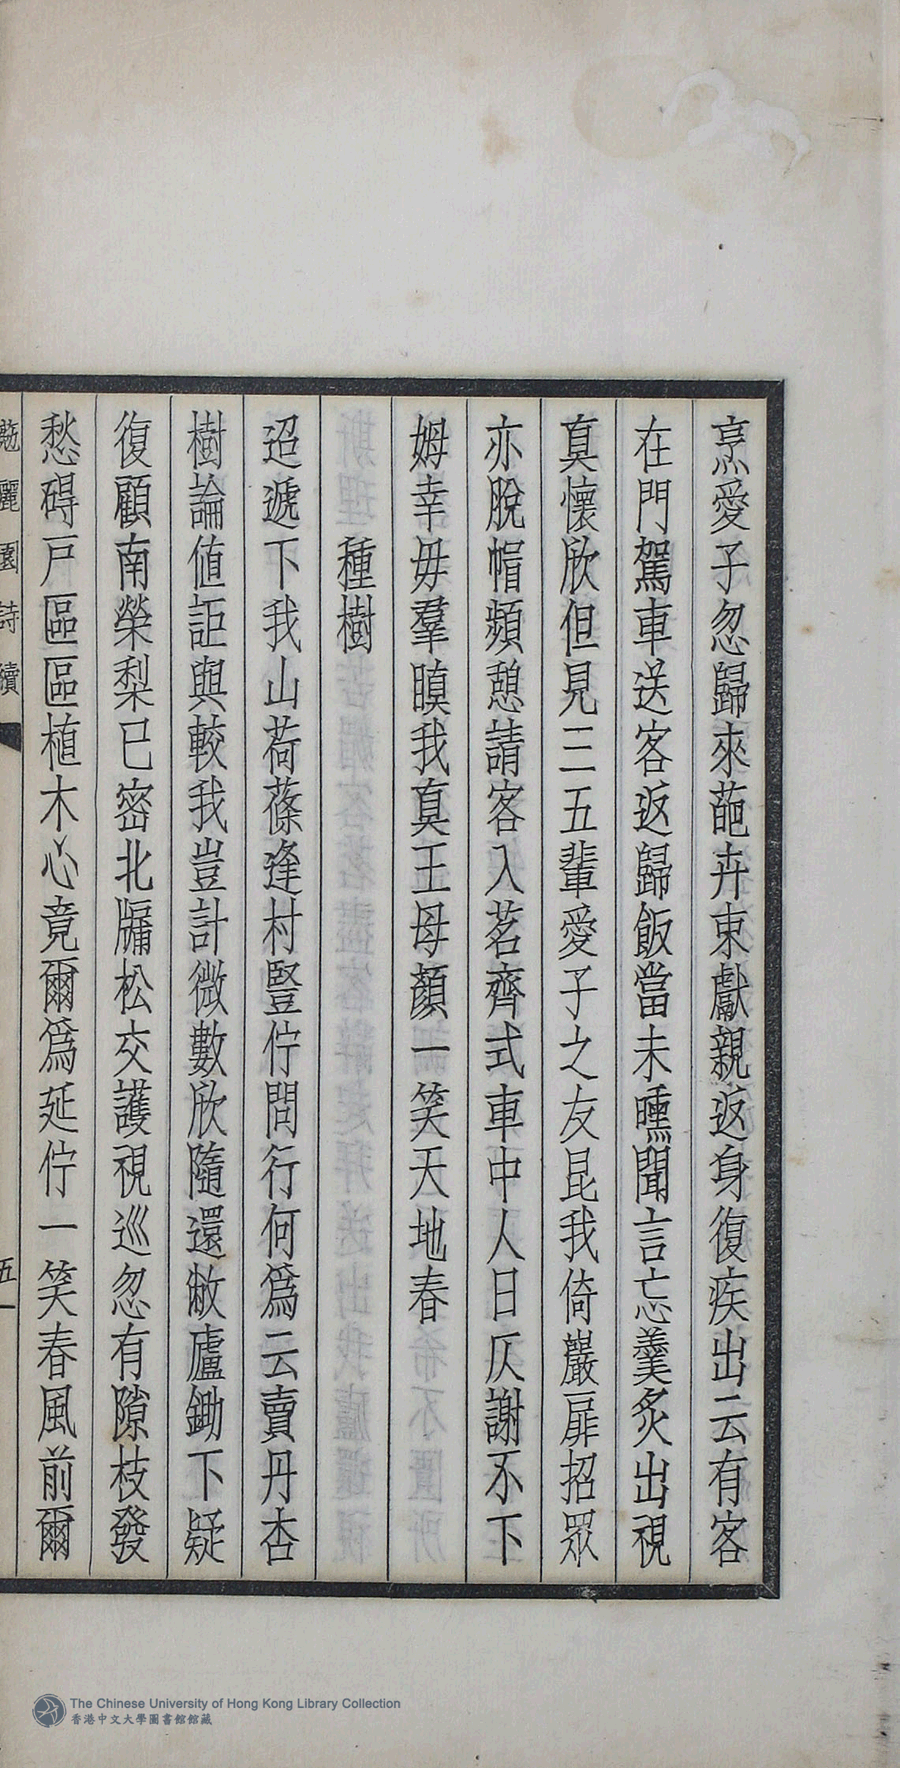 烹愛子忽歸來葩卉束獻親返身復疾出云有客
在門駕車送客返歸飯當未曛聞言忘羹炙出視
真懷欣但見三五輩愛子之友昆我倚巖扉招眾
亦脫帽頻憩請客入茗齊式車中人日仄謝不下
姆幸毋羣瞋我真王母顏一笑天地春
種樹
迢遞下我山荷蓧逢村豎佇問行何爲云賣丹杏
樹論值詎與較我豈計微數欣隨還敝廬鋤下疑
復顧南榮梨已密北牖松交護視巡忽有隙枝發
愁碍戶區區植木心竟爾爲延佇一笑春風前爾
麗園詩續
五
The Chinese University of Hong Kong Library Collection
香港中文大學圖書館館藏